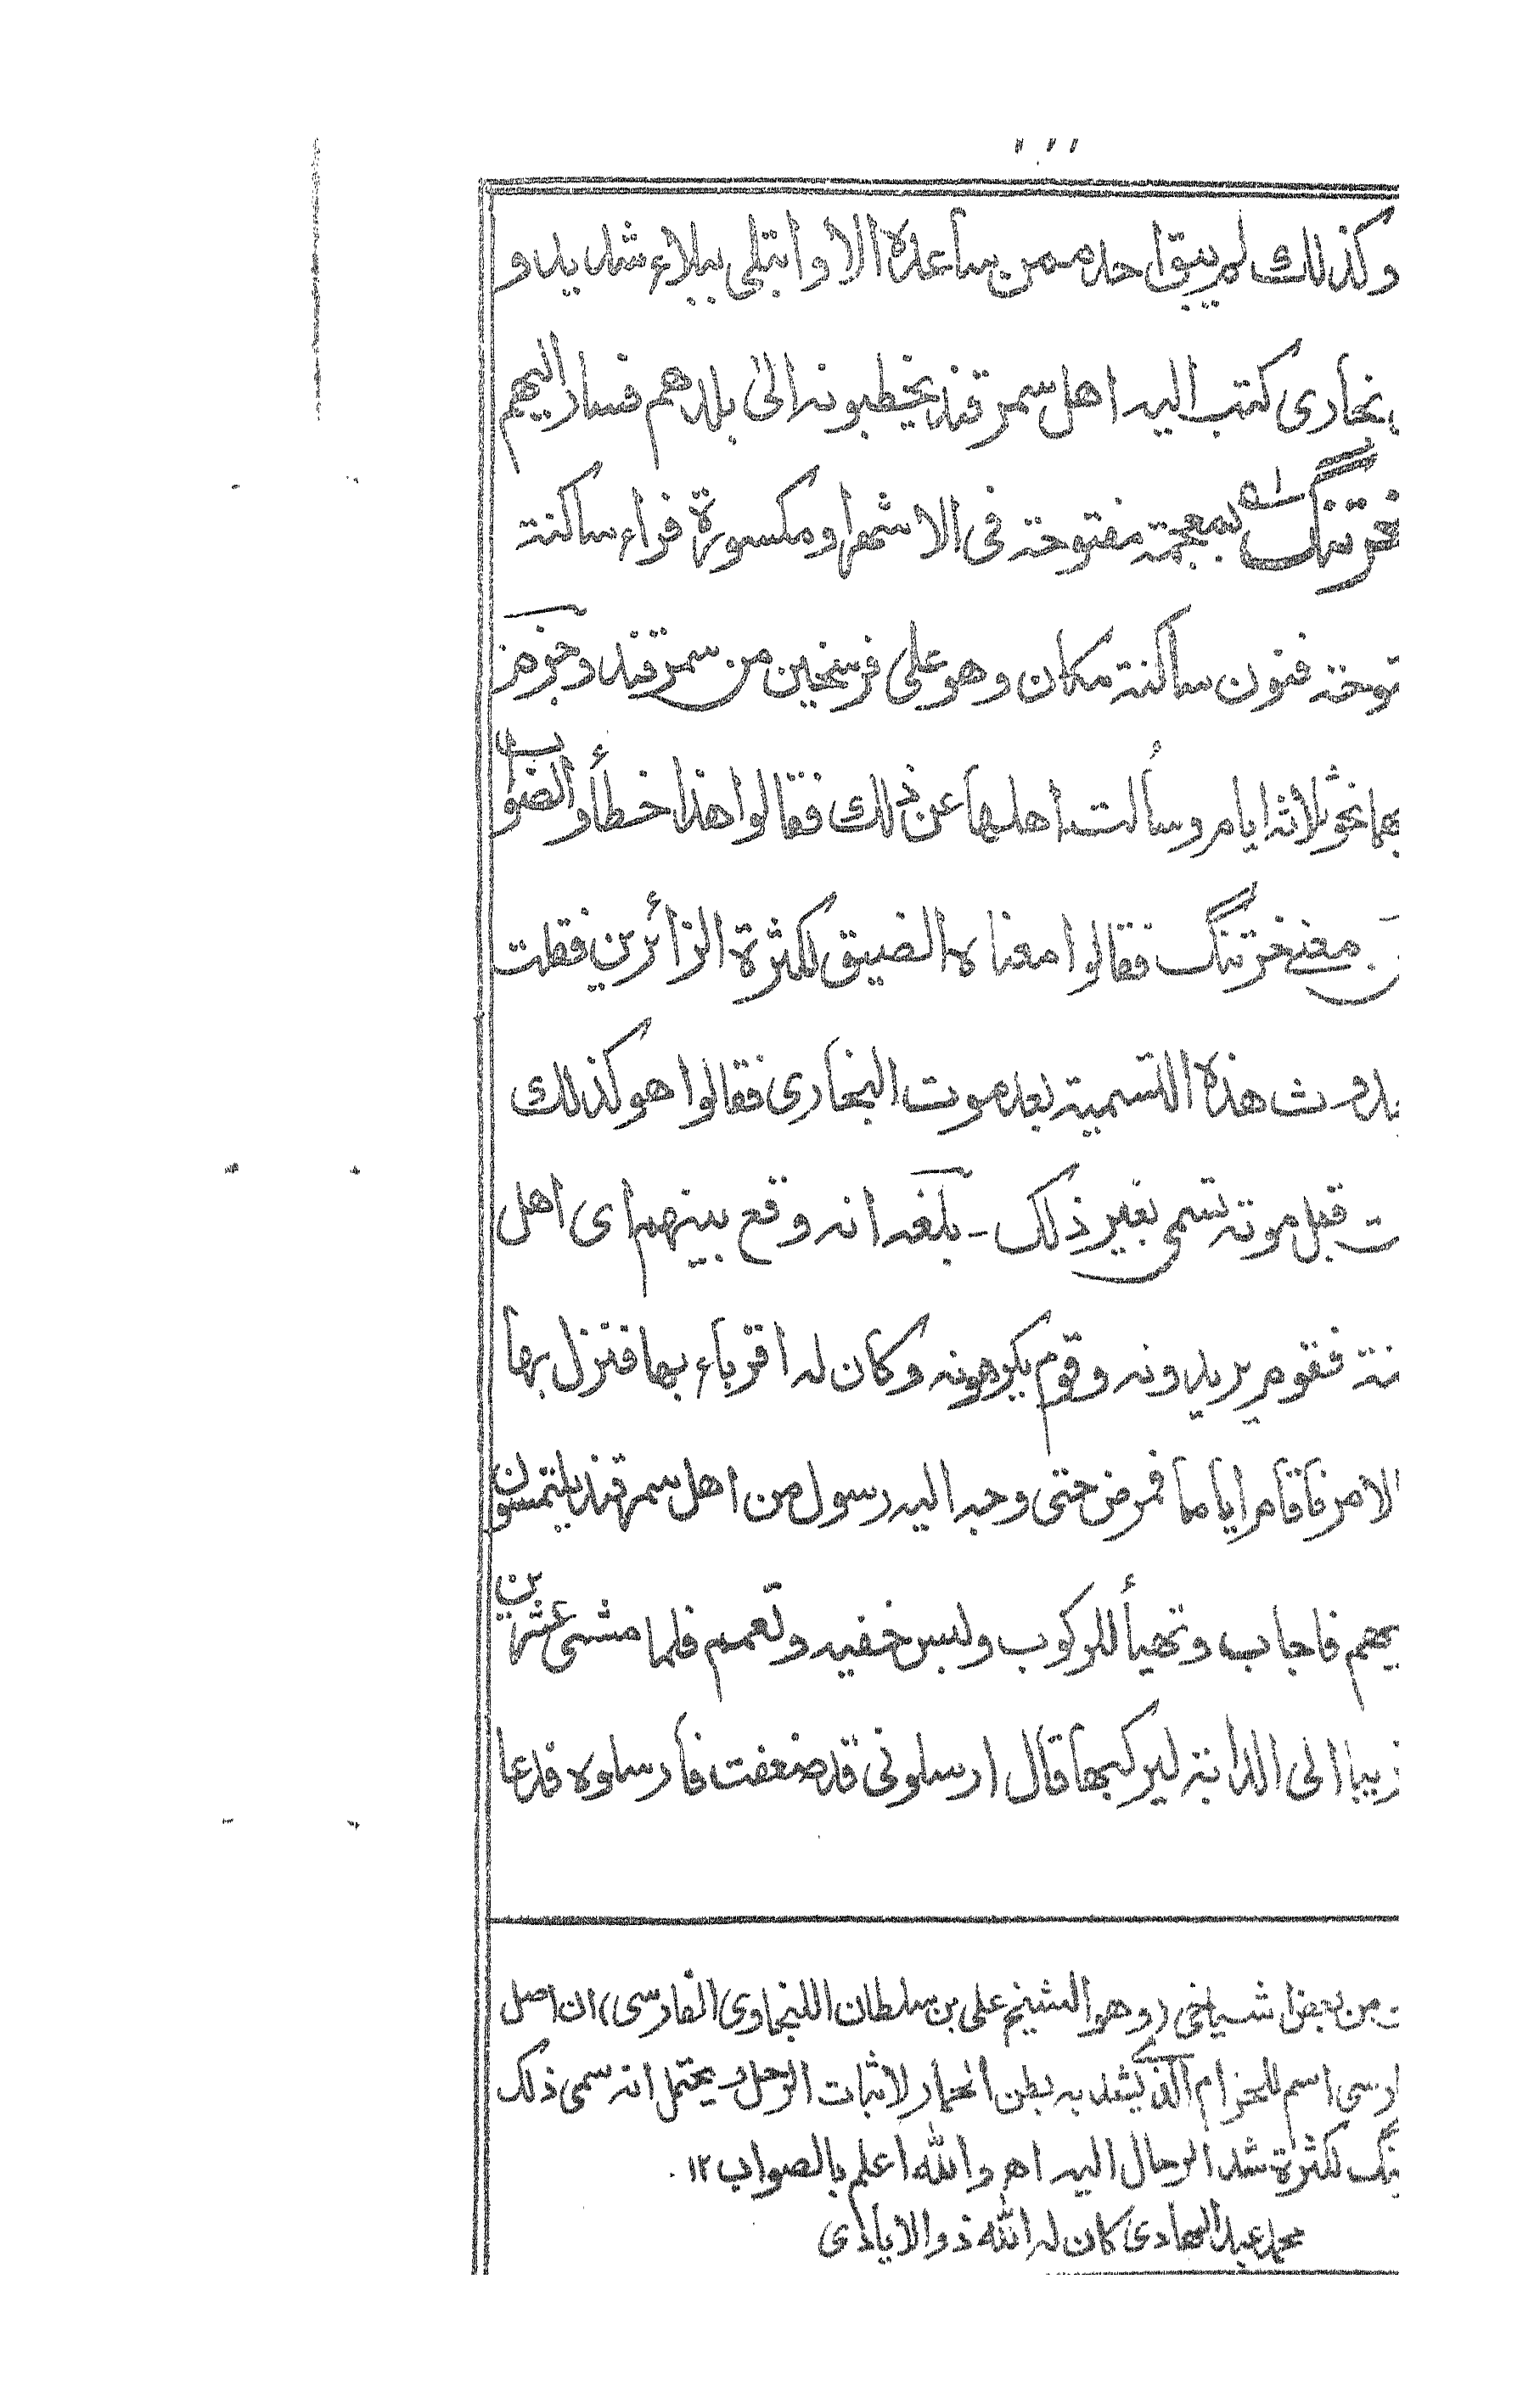 وكذلك لم يبق احد ممن ساعده الا وابتلى ببلاء شديد و
بخارى كتب اليه اهل سمرقند يخطبونه الى بلدهم فسار اليهم
خرتنگ بمعجمة مفتوحة فى الاشهر او مكسورة فراء ساكنة
توحة فنون ساكنة مكان وهو على فرسخين من سمرقند وخبر
بها نحو ثلاثة ايام وسألت اهلها عن ذلك فقالوا هذا خطأ والصواب
معنى خرتنگ فقالوا معناه الضيق لكثرة الزائرين فقلت
حدوث هذه التسمية بعد موت البخارى فقالوا هو كذلك
ت قبل موته تسمى بغير ذلك - بلغه انه وقع بينهم اى اهل
فتنة فقوم يريدونه وقوم يكرهونه وكان له اقرباء بها فنزل بها
الامر فأقام اياما فمرض حتى وجه اليه رسول من اهل سمرقند يلتمسون
يهم فاجاب وتهيأ للركوب ولبس خفيه وتعمم فلما مشى عشرين
ريبا الى الدابة ليركبها قال ارسلونى قد ضعفت فأرسلوه فدعا
ت من بعض اشياخى (وهو الشيخ على بن سلطان اللنجاوى الفارسى) ان اصل
ارسى اسم للحزام الذى يشد به بطن الحمار لاثبات الرحل ويحتمل انه سمى ذلك
تنگ لكثرة شد الرحال اليه اھ والله اعلم بالصواب ١٢
محمد عبد الهادى كان له الله ذو الايادى